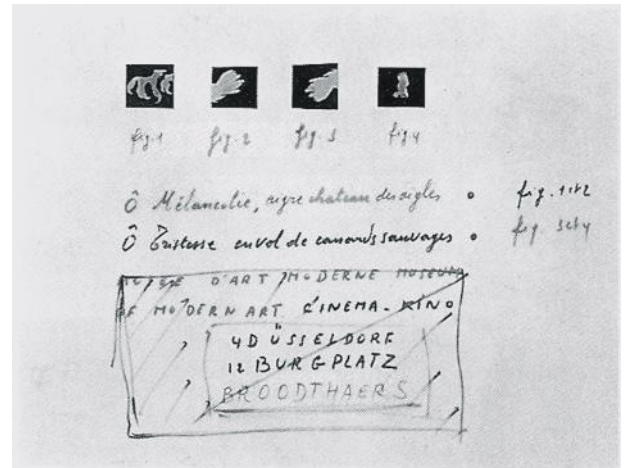 fig.1 fig.2 fig.3 fig.4
Ô Mélancolie, aigre chateau des aigles • fig. 1 et 2
Ô Tristesse envol de canards sauvages • fig. 3 et 4
MUSEE D'ART MODERNE MUSEUM
OF MODERN ART CINEMA-KINO
4 DÜSSELDORF
12 BURGPLATZ
BROODTHAERS